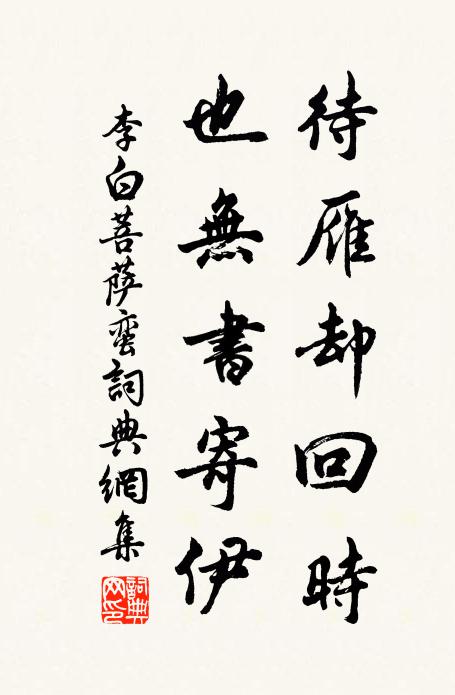 待雁却回時
也無書寄伊
李白菩薩蛮詞典網集
詞典